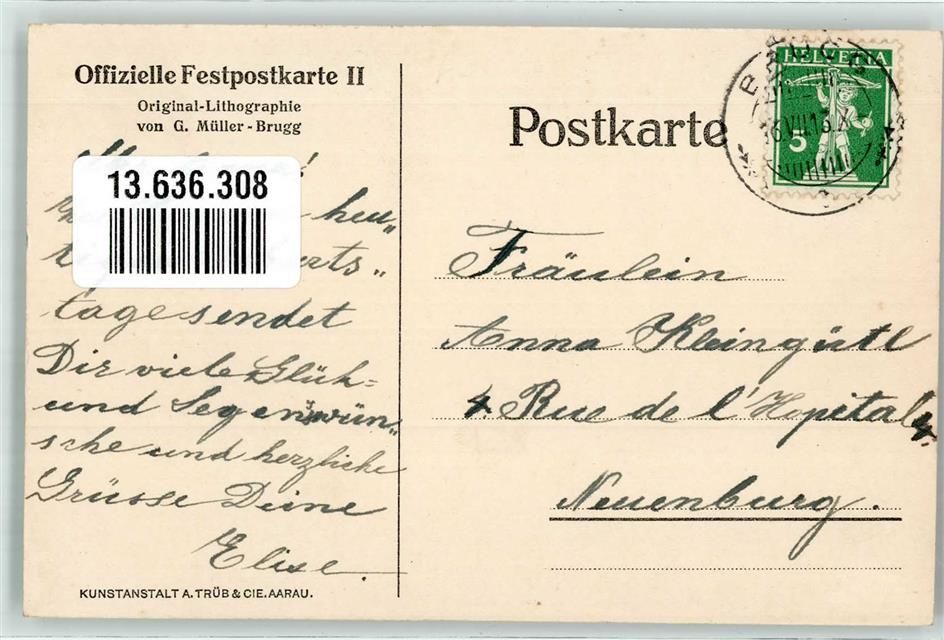 Offizielle Festpostkarte II
Original-Lithographie
von G. Müller-Brugg
Postkarte
HELVETIA
5
BRUGG
13.636.308
heu„
erts„
tage sendet
Dir viele Glück=
und Segenswün„
sche und herzliche
Grüsse Deine
Elise.
Fräulein
Anna Kleingütl
4 Rue de l'Hopital 4.
Neuenburg.
KUNSTANSTALT A. TRÜB & CIE. AARAU.